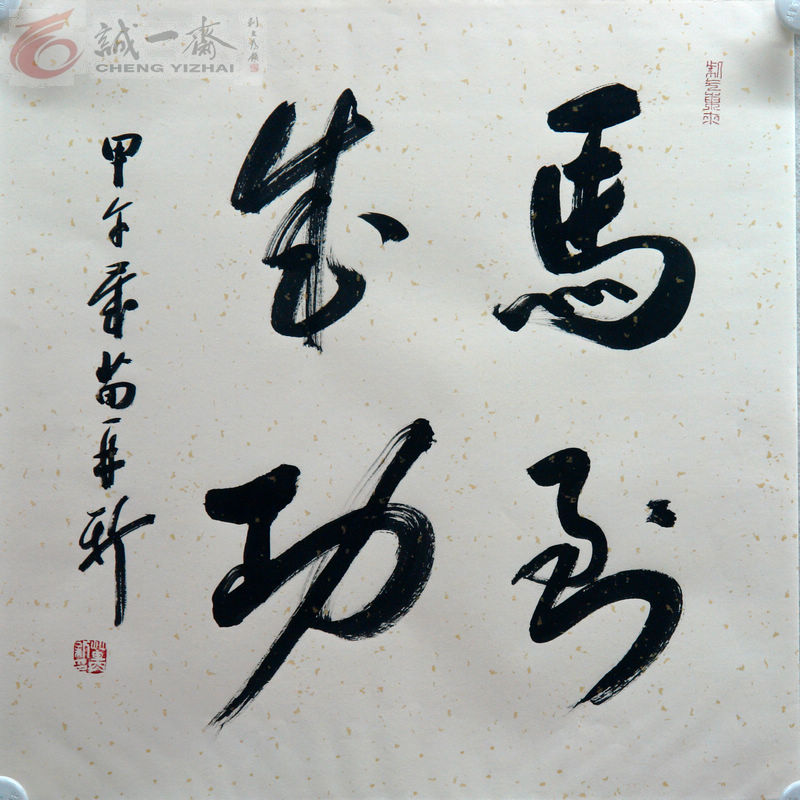 誠一齋
CHENG YIZHAI
馬到
成功
甲午歲苗再新